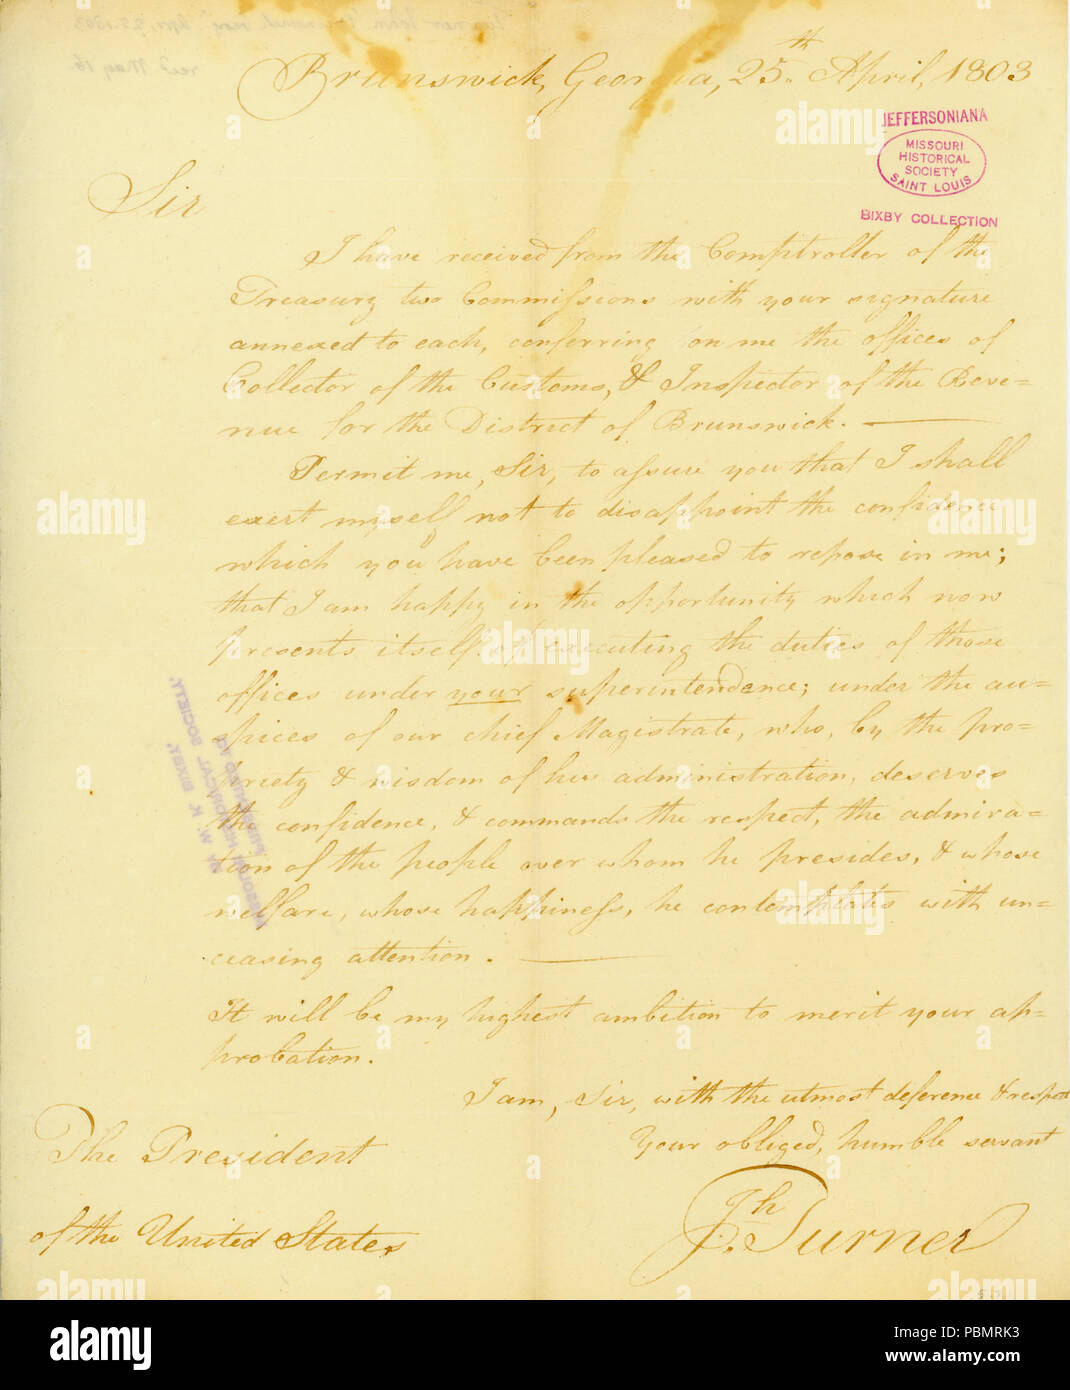 Brunswick, Georgia, 25th April, 1803
JEFFERSONIANA
MISSOURI
HISTORICAL
SOCIETY
SAINT LOUIS
BIXBY COLLECTION
Sir
I have received from the Comptroller of the
Treasury two Commissions with your signature
annexed to each, conferring on me the offices of
Collector of the Customs, & Inspector of the Reve=
nue for the District of Brunswick.
Permit me, Sir, to assure you that I shall
exert myself not to disappoint the confidence
which you have been pleased to repose in me;
that I am happy in the opportunity which now
presents itself of executing the duties of those
offices under your superintendence; under the au=
spices of our chief Magistrate, who, by the pro=
priety & wisdom of his administration, deserves
the confidence, & commands the respect, the admira=
tion of the people over whom he presides, & whose
welfare, whose happiness, he contemplates with un=
ceasing attention.
It will be my highest ambition to merit your ap=
probation.
I am, Sir, with the utmost deference & respect
Your obliged, humble servant
Jh. Turner
The President
of the United States
W. K. BIXBY.
SOCIETY.
alamy
a
alamy
Image ID: PBMRK3
www.alamy.com